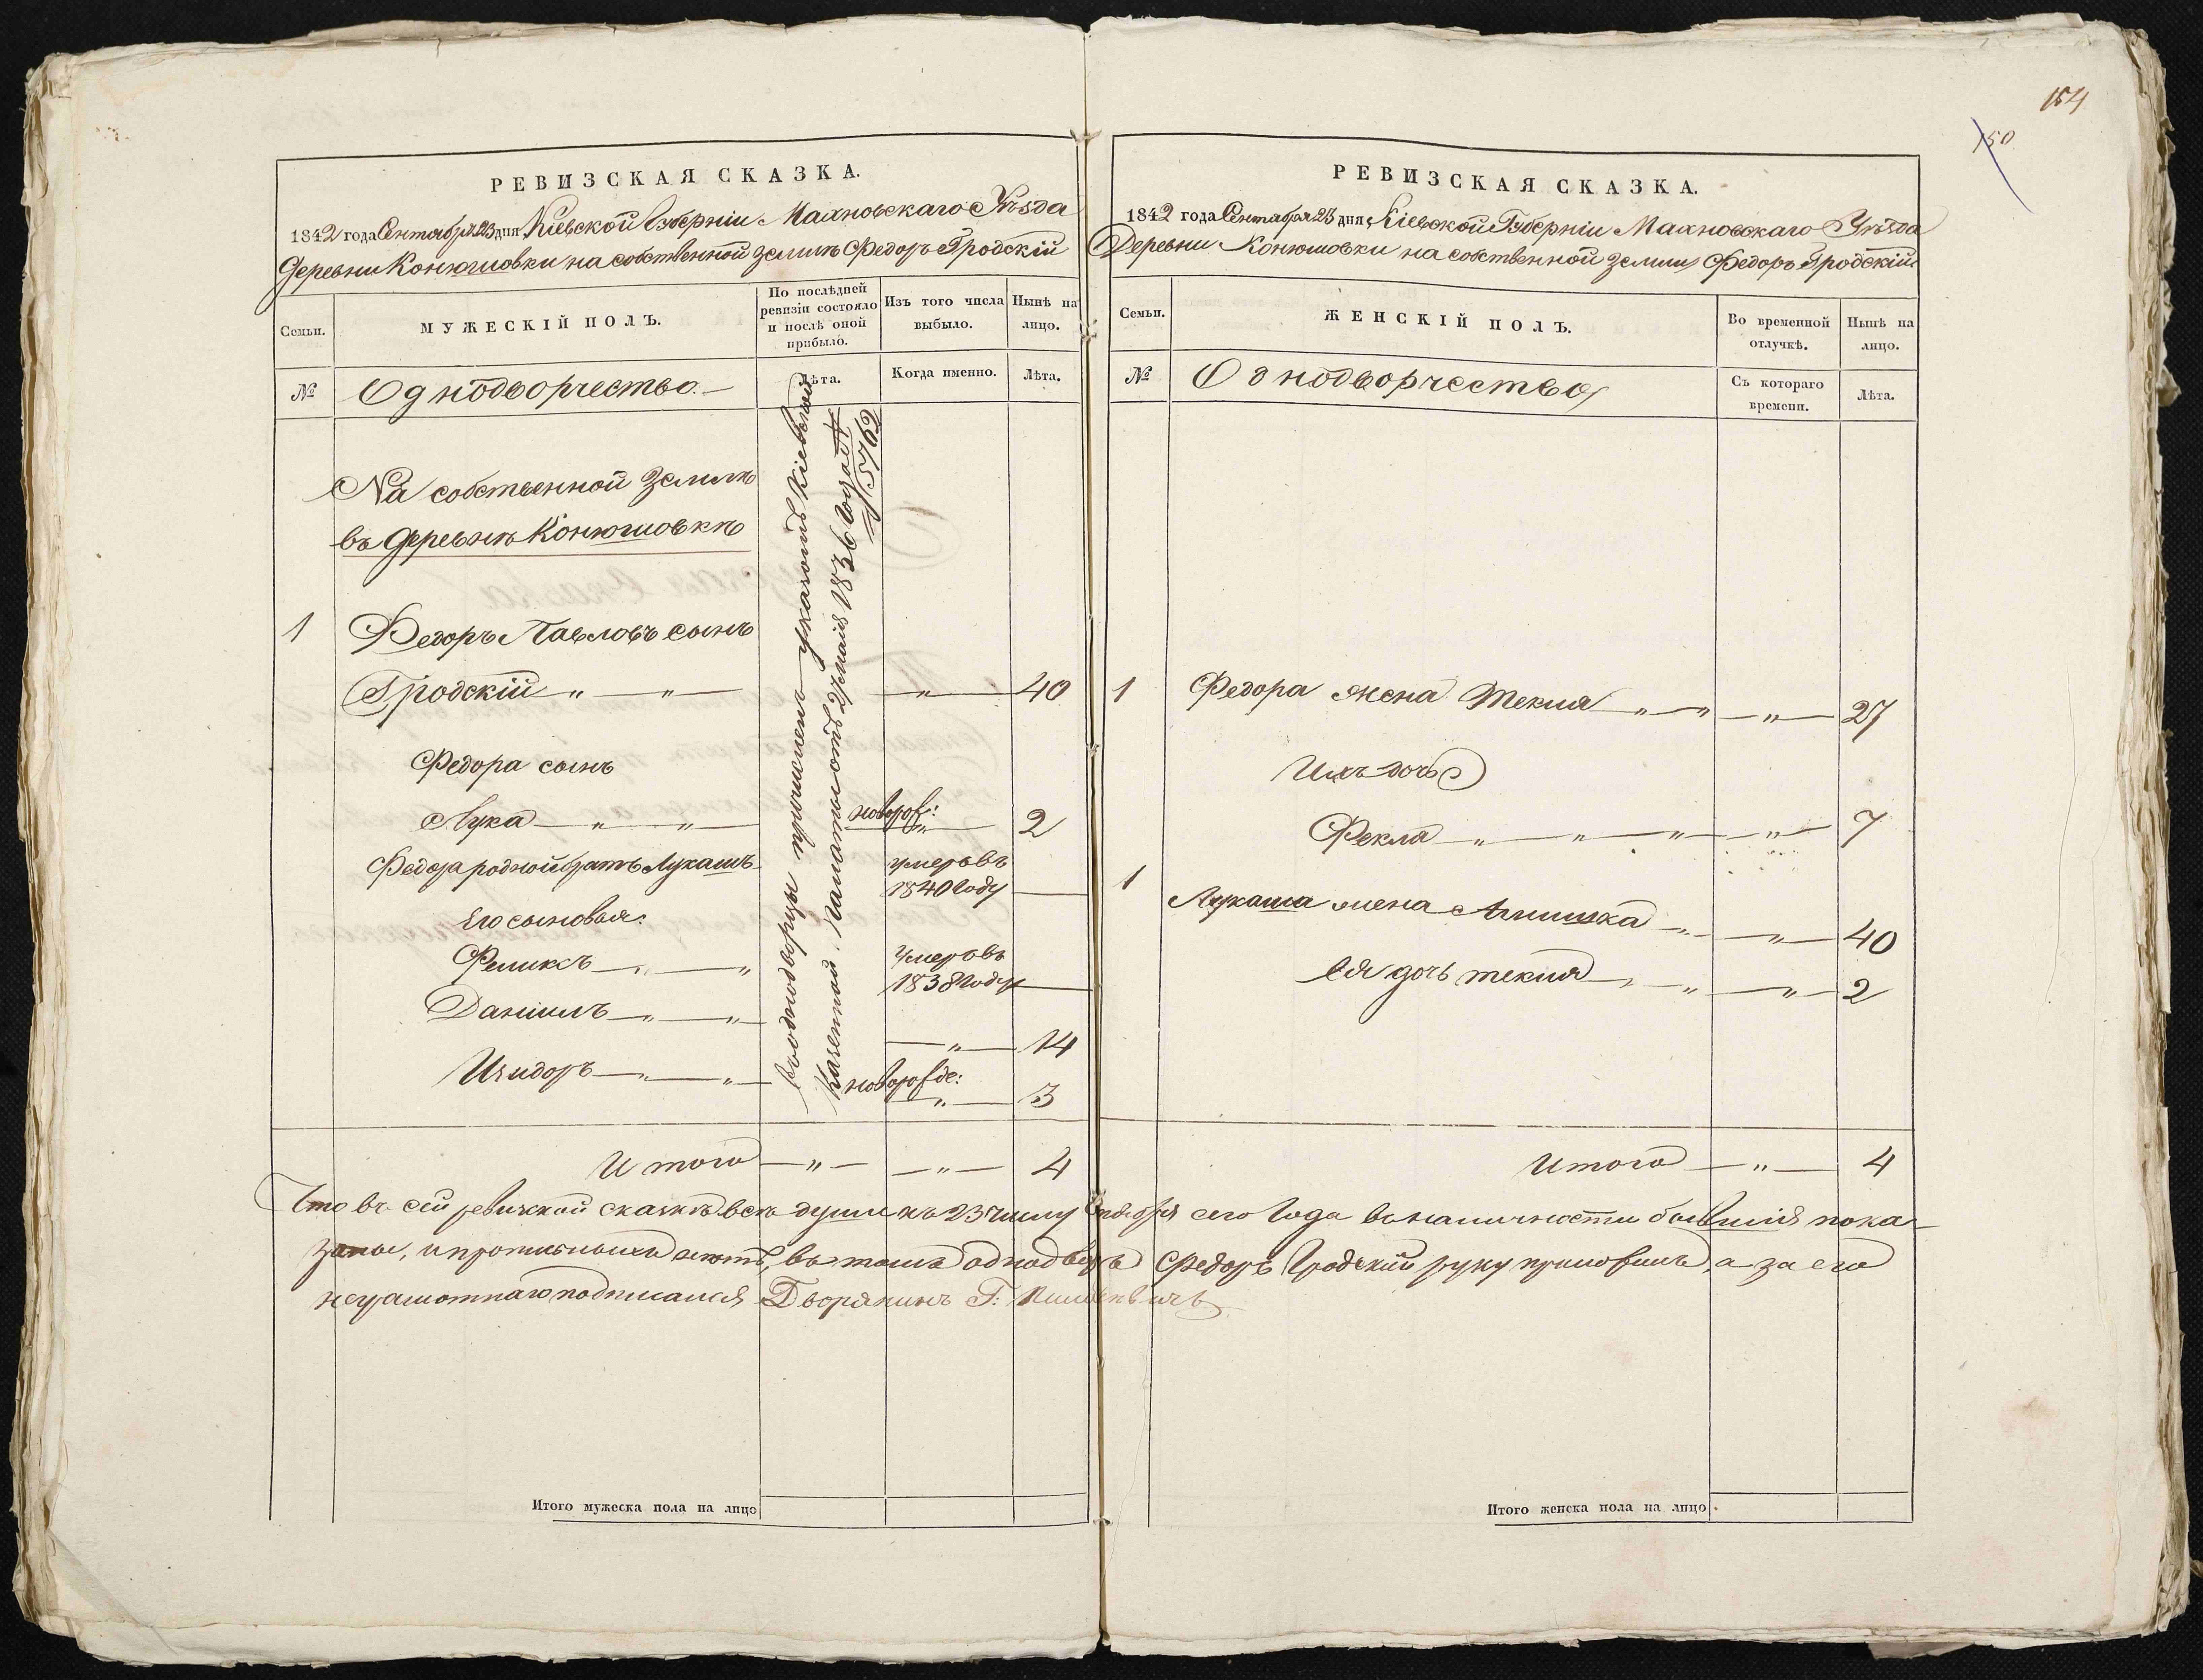 154
150
РЕВИЗСКАЯ СКАЗКА.
1842 года Сентября 23 дня, Кіевской Губерніи Махновскаго Уѣзда
Деревни Конюшовки на собственной землѣ Федоръ Гродскій
Семьи.
МУЖЕСКІЙ ПОЛЪ.
По послѣдней ревизіи состояло и послѣ оной прибыло.
Изъ того числа выбыло.
Нынѣ на лицо.
№
Однодворчество.
Лѣта.
Когда именно.
Лѣта.
На собственной землѣ
въ деревнѣ Конюшовкѣ
1 Федоръ Павловъ сынъ
Гродскій 40
Федора сынъ
Лука новорож: 2
Федора родной братъ Лукашъ умеръ въ 1840 году
Его сыновья:
Феликсъ умеръ въ 1838 году
Даніилъ 14
Изидоръ новорожде: 3
въ однодворцы причислены указомъ Кіевской
Казенной Палаты отъ 27 маія 1836 года №
15762
Итого 4
РЕВИЗСКАЯ СКАЗКА.
1842 года Сентября 23 дня, Кіевской Губерніи Махновскаго Уѣзда
Деревни Конюшовки на собственной земли Федоръ Гродскій
Семьи.
ЖЕНСКІЙ ПОЛЪ.
Во временной отлучкѣ.
Нынѣ на лицо.
№
Однодворчество
Съ котораго времени.
Лѣта.
1 Федора жена Текля 27
Ихъ дочь
Фекла 7
1 Лукаша жена Агнишка 40
Ея дочь текля 2
Итого 4
Что въ сей ревизкой сказкѣ всѣ души къ 23 числу Сентября сего года въ наличности бывшія пока-
заны, и прописныхъ нѣтъ, въ томъ однодворецъ Федоръ Гродскій руку приложилъ, а за его
неграмотнаго подписался Дворянинъ Г:
Итого мужеска пола на лицо
Итого женска пола на лицо